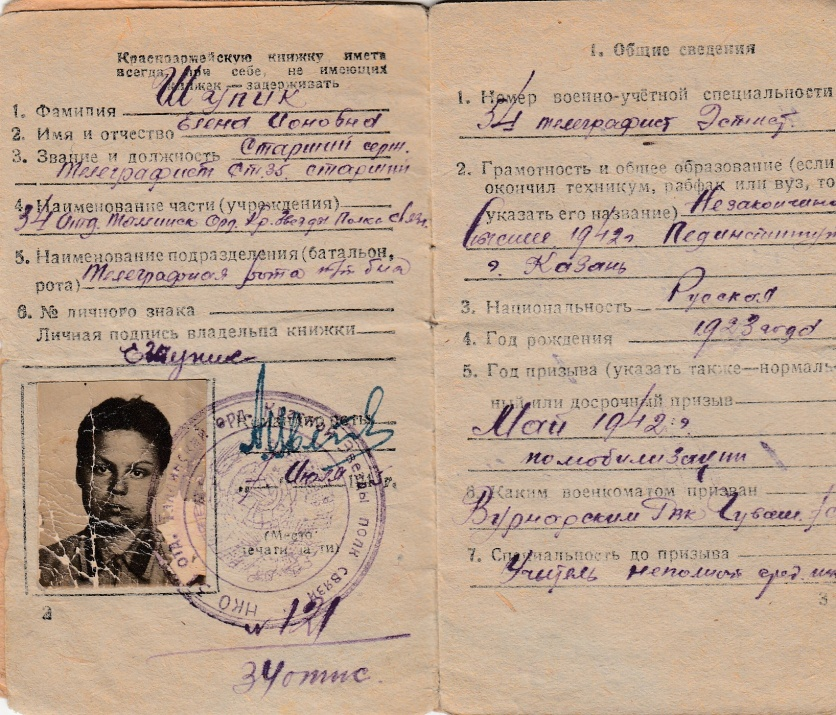 Красноармейскую книжку иметь
всегда при себе, не имеющих
книжек — задерживать
1. Фамилия Шупик
2. Имя и отчество Елена Ионовна
3. Звание и должность Старший серж.
Телеграфист Ст.35. старший
4. Наименование части (учреждения)
34 Отд. Орд. Кр. Звезды Полка Связи
5. Наименование подразделения (батальон,
рота) Телеграфная рота
6. № личного знака
Личная подпись владельца книжки
ЕШупик
Командир роты
Июля 1945г.
(Место
печати части)
ОТД. ОРД. ЗВЕЗДЫ ПОЛК СВЯЗИ
НКО
№ 121
34 отпс.
2
1. Общие сведения
1. Номер военно-учётной специальности
34 телеграфист
2. Грамотность и общее образование (если
окончил техникум, рабфак или вуз, то
указать его название) Незакончено
Высшее 1942г Пединститут
г. Казань
3. Национальность Русская
4. Год рождения 1923 года
5. Год призыва (указать также—нормаль-
ный или досрочный призыв
Май 1942 г
по мобилизации
6. Каким военкоматом призван
Вурнарским РВК Чуваш.
7. Специальность до призыва
Учитель неполной сред. шк
3